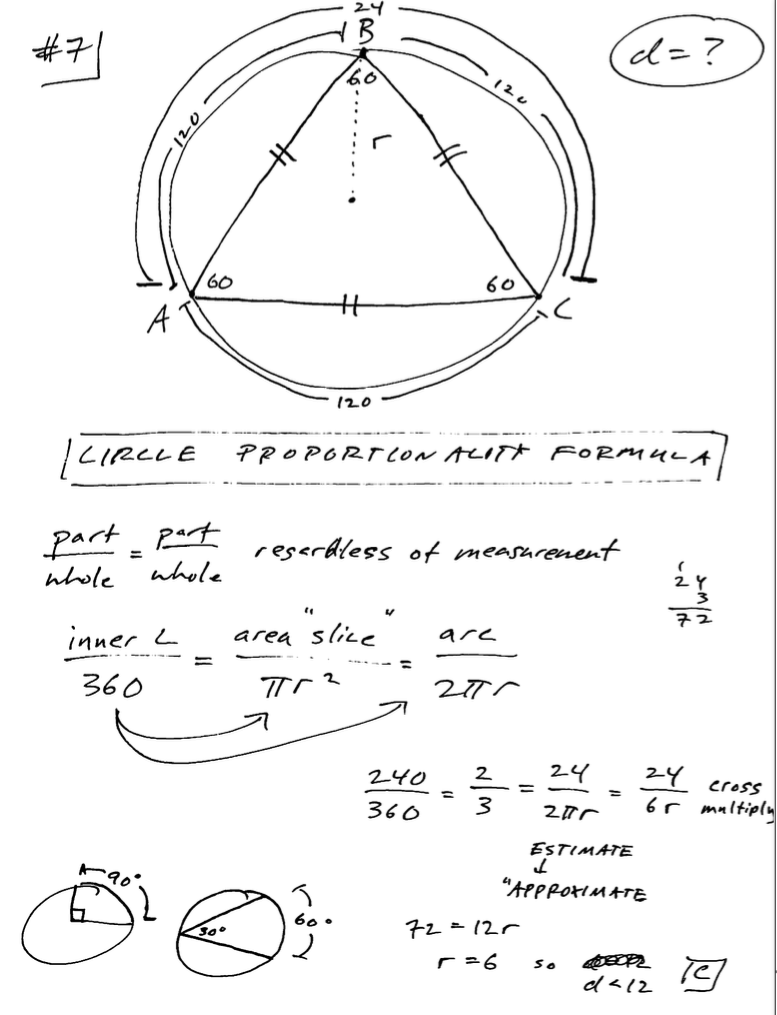 #7
24
B
d = ?
60
120
120
r
60
60
A
C
120
CIRCLE PROPORTIONALITY FORMULA
part/whole = part/whole regardless of measurement
24
3
72
inner ∠/360 = area "slice"/πr² = arc/2πr
240/360 = 2/3 = 24/2πr = 24/6r cross multiply
ESTIMATE
↓
"APPROXIMATE
90°
30°
60°
72 = 12r
r = 6 so d < 12 C